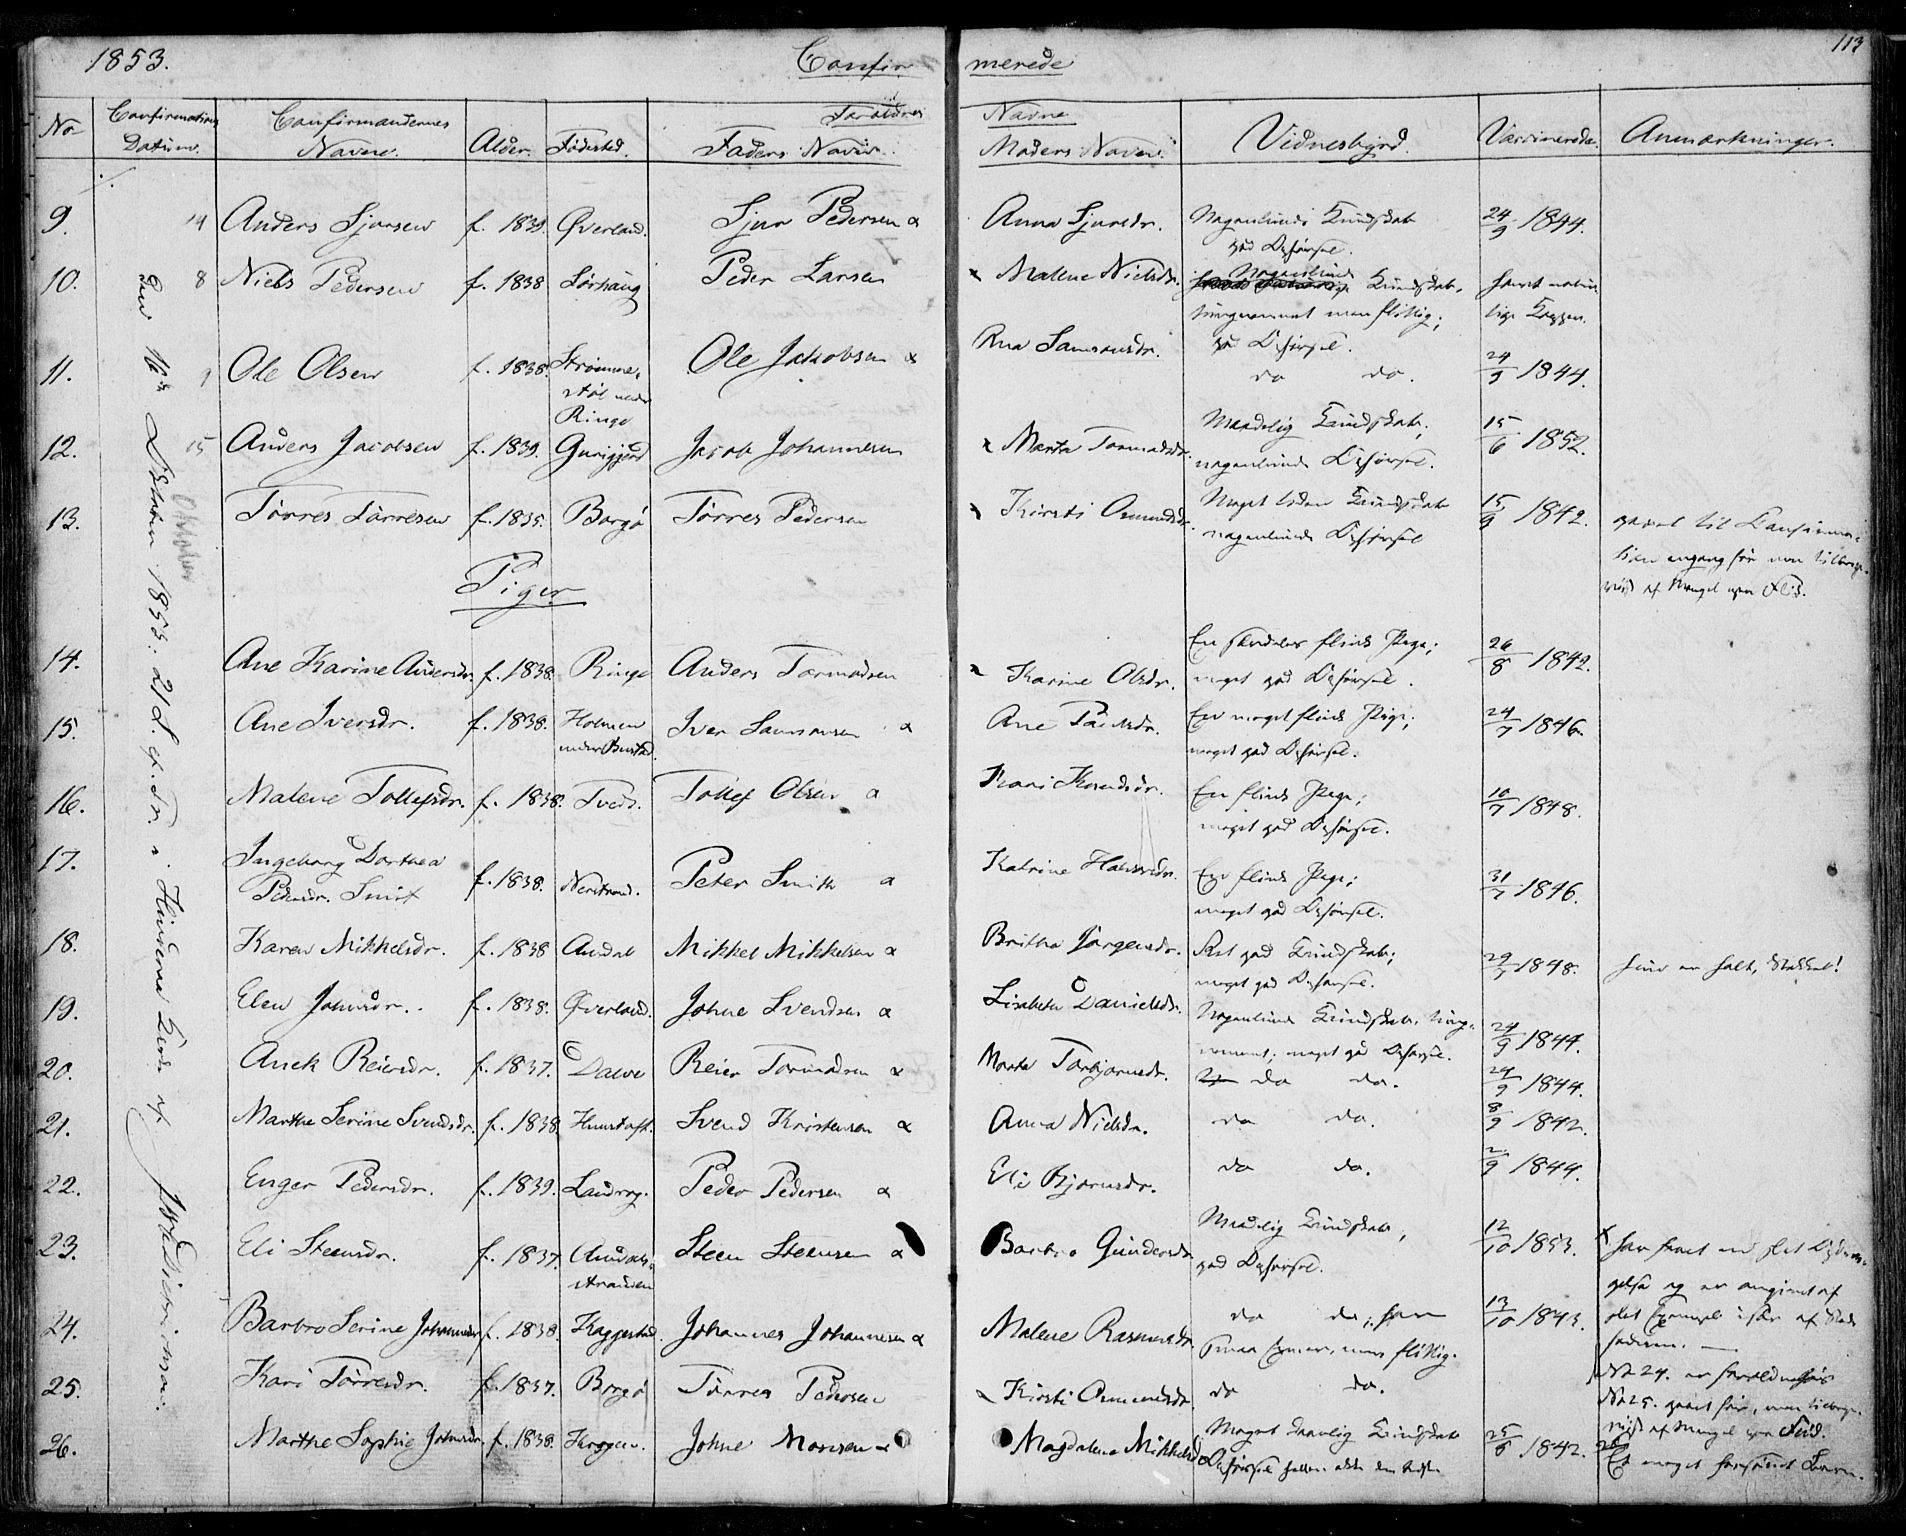 1853.
Confir merede
113
No
Confirmations Datum.
Confirmandernes Navne.
Alder.
Fødested.
Forældres Navne
Faders Navn.
Moders Navn.
Vidnesbyrd.
Vaccinerede.
Anmærkninger.
den 16de Oktober 1853: 21 S. ef. Tr. i Hinderaa Kirke af
Oktober
9. 14 Anders Sjursen f. 1839. Øverland. Sjur Pedersen & Anna Sjursdr. Nogenlunde Kundskab god Opførsel. 24/9 1844.
10. 8 Niels Pedersen f. 1838 Sørhaug Peder Larsen & Malene Nielsdr. Nogenlunde Kundskab, tungnemmet men flittig; god Opførsel. havt naturlige Kopper.
11. 1 Ole Olsen f. 1838. Strømmestøl under Ringe Ole Jakobsen & Ana Samsonsdr. do do. 24/9 1844.
12. 15 Anders Jacobsen f. 1839. Gunigjerd Jacob Johannesen & Marta Tormodsdr. Maadelig Kundskab, nogenlunde Opførsel. 15/6 1852.
13. Tørres Tørresen f. 1835. Borgø Tørres Pedersen & Kirsti Osmundsdr. Meget liden Kundskab nogenlunde Opførsel 15/9 1842. gaaet til Confirmationen engang før men tilbageviist af Mangel paa Flid.
Piger
14. Ane Karine Andersdr. f. 1838. Ringe Anders Tormodsen & Karine Olsdr. En særdeles flink Pige; meget god Opførsel. 26/8 1842.
15. Ane Iversdr. f. 1838. Holmen under Bustad. Iver Samsonsen & Ane Paulsdr. En meget flink Pige; meget god Opførsel. 24/7 1846.
16. Malene Tollefsdr. f. 1838. Tved. Tollef Olsen & Kari Knudsdr. En flink Pige; meget god Opførsel. 10/7 1848.
17. Ingeborg Dorthea Pedersdr. Smit f. 1838. Nerstrand. Peter Smith & Katrine Halvorsdr. En flink Pige; meget god Opførsel. 31/7 1846.
18. Karen Mikkelsdr. f. 1838 Amdal Mikkel Mikkelsen & Britha Jørgensdr. Ret god Kundskab; meget god Opførsel. 29/7 1848. hun er halt, Stakkel!
19. Elen Johnsdr. f. 1838. Øverland. Johne Svendsen & Lisabeta Danielsdr. Nogenlunde Kundskab, tungnemmet; meget god Opførsel. 24/9 1844.
20. Anek Reiersdr. f. 1837. Dalve Reier Tormodsen & Marta Torbjørnsdr. do do. 24/9 1844.
21. Marthe Serine Svendsdr. f. 1838 Svend Kristensen & Anna Nielsdr. do do. 8/9 1842.
22. Enger Pedersdr. f. 1839. Peder Pedersen & Eli Bjørnsdr. do do. 2/9 1844.
23. Eli Steensdr. f. 1837. Amdalsstranden Steen Steensen & Barbro Gundersdr. Maadelig Kundskab, god Opførsel. 12/10 1853.
x har havt en slet og er omgivet af slet Exempel især af
24. Barbro Serine Johannesdr. f. 1838. Kaggestad. Johannes Johannesen & Malene Rasmusdr. do do; har smaa Evner, men flittig. 13/10 1843.
No 24. er
25. Kari Tørresdr. f. 1837. Borgø Tørres Pedersen & Kirsti Osmundsdr. do do.
No 25. gaaet før, men tilbageviist af Mangel paa Flid.
26. Marthe Sophie Johnsdr. f. 1838. Kroggen. Johne Monsen & Magdalene Mikkelsdr. Meget daarlig Kundskab Opførsel heller ikke den bedste 25/8 1842. 26 Et meget forsømt Barn.